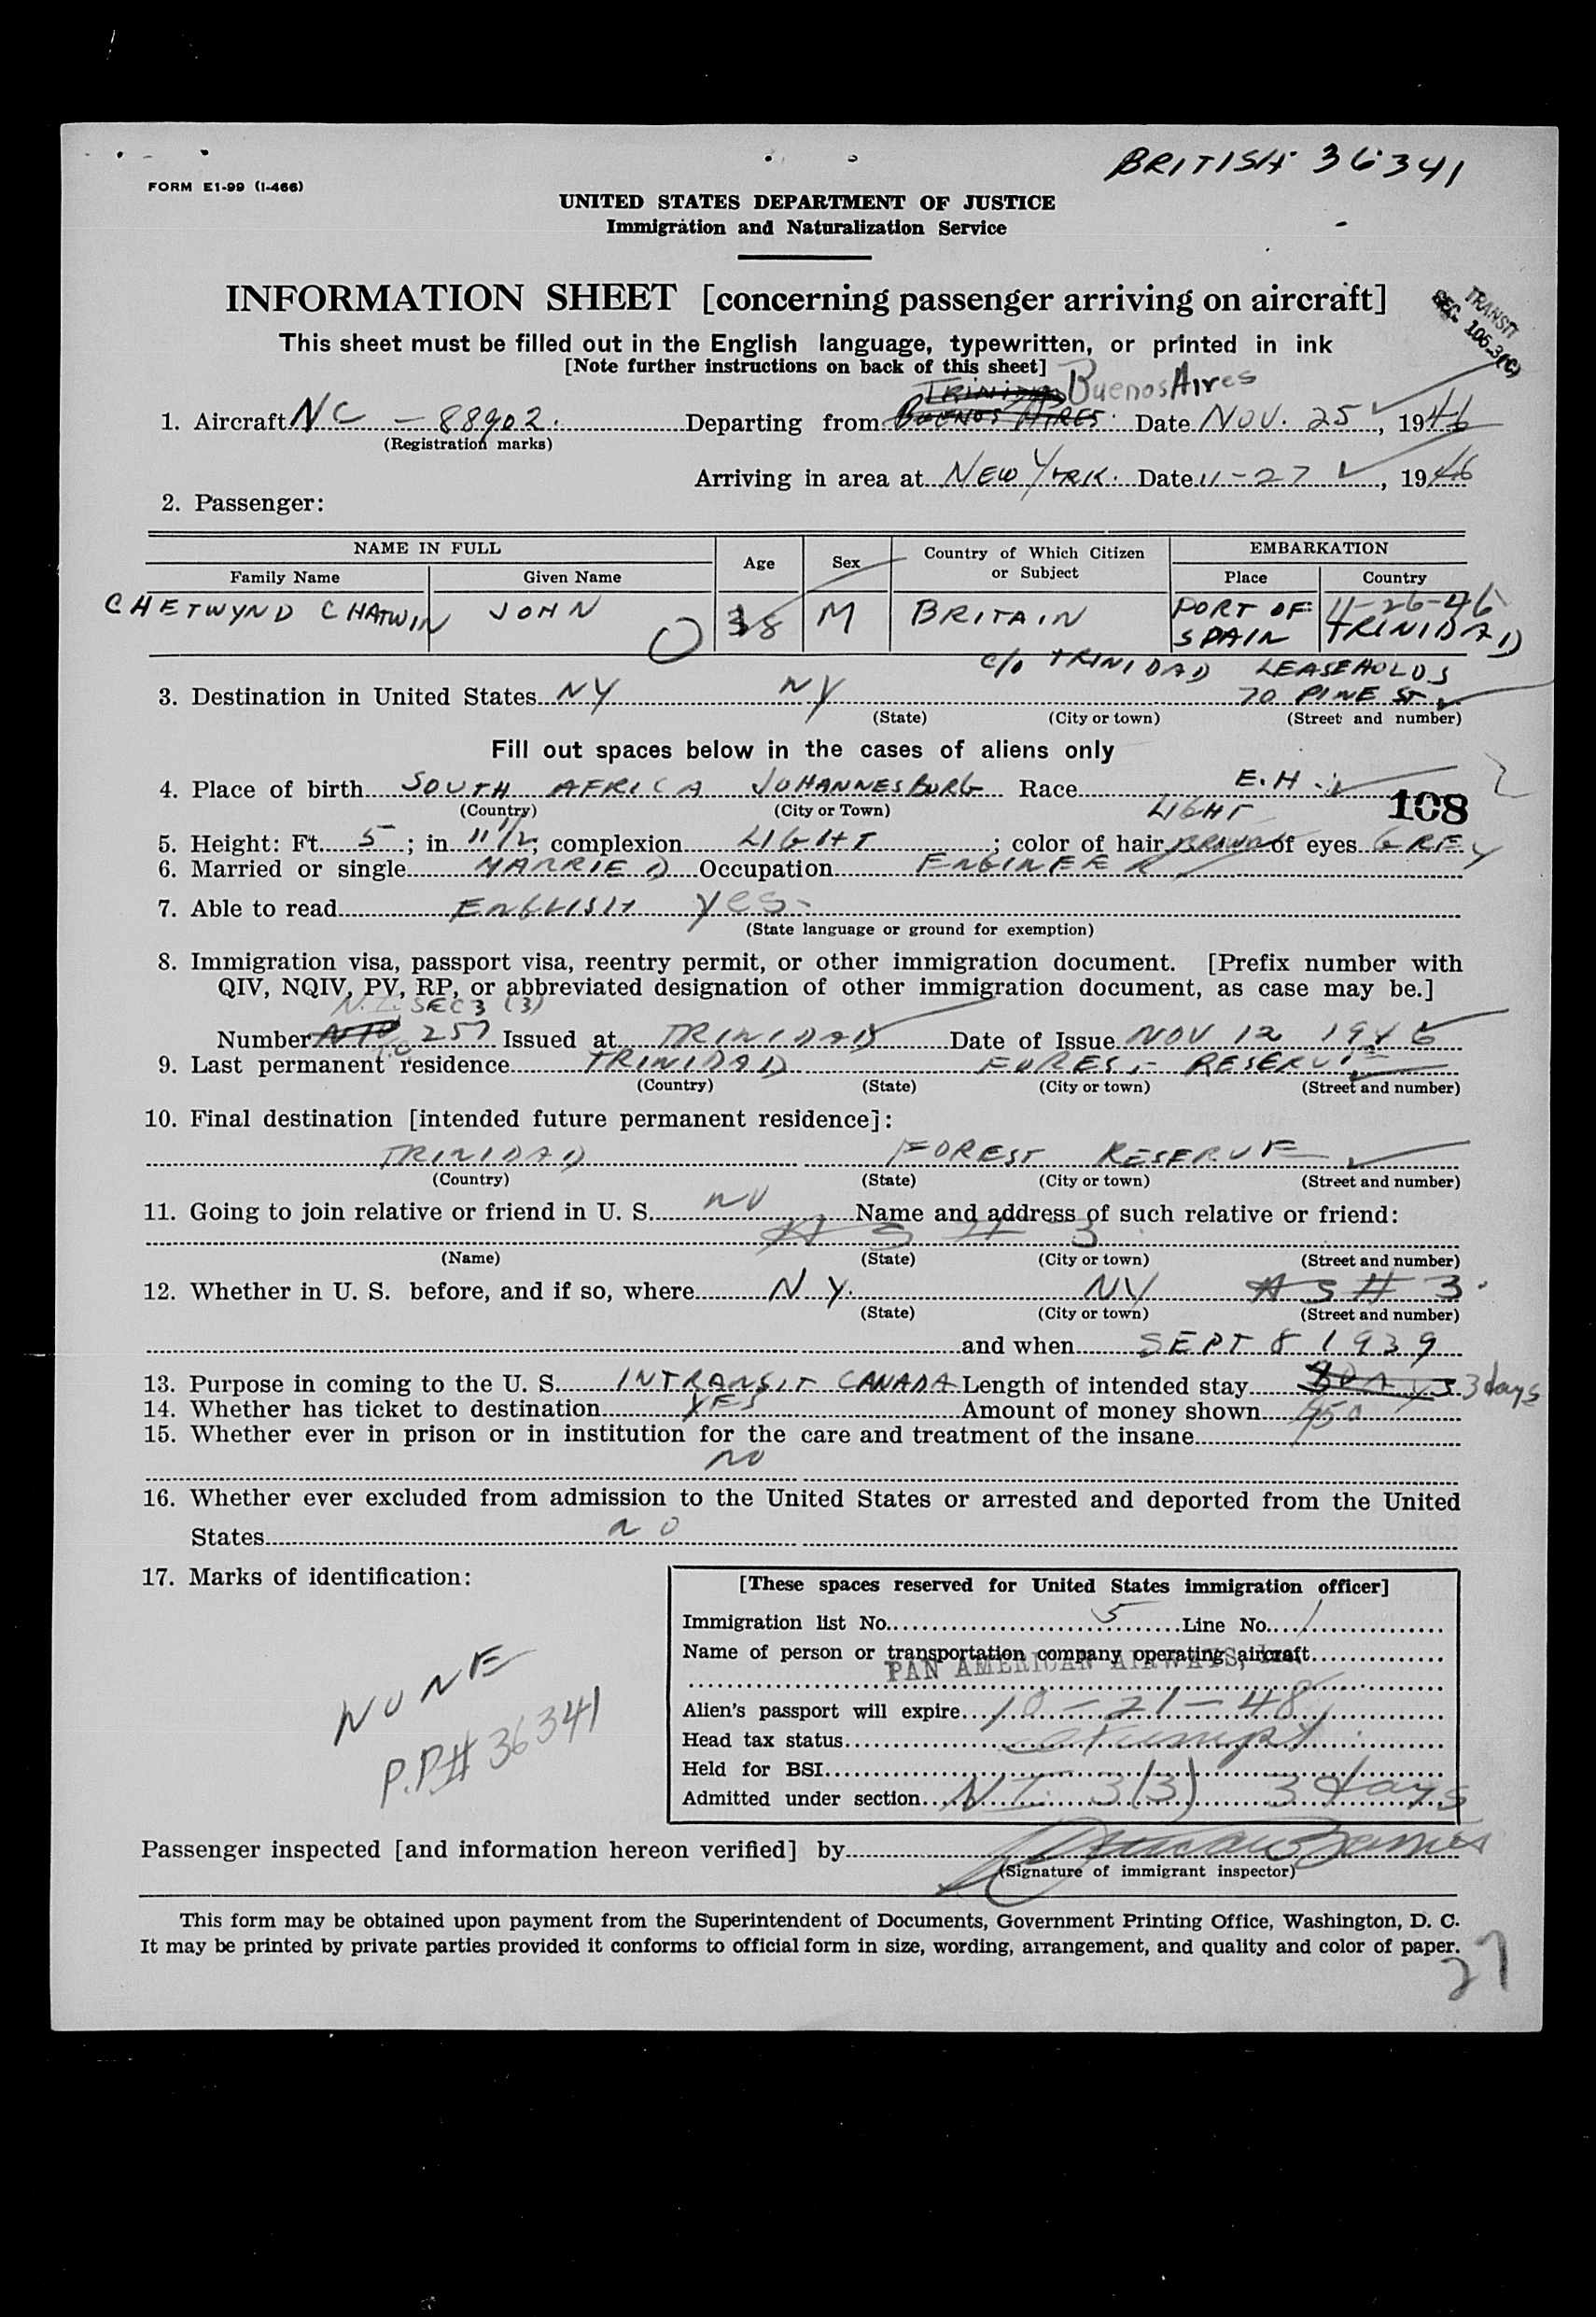 BRITISH 36341
FORM E1-99 (I-466)
UNITED STATES DEPARTMENT OF JUSTICE
Immigration and Naturalization Service
INFORMATION SHEET [concerning passenger arriving on aircraft]
TRANSIT
SEC. 105.3(C)
This sheet must be filled out in the English language, typewritten, or printed in ink
[Note further instructions on back of this sheet]
TRINIDAD Buenos Aires
1. Aircraft NC - 88902. Departing from BUENOS AIRES. Date NOV. 25, 1946
(Registration marks)
Arriving in area at NEW YORK. Date 11-27, 1946
2. Passenger:
NAME IN FULL Age Sex Country of Which Citizen or Subject EMBARKATION
Family Name Given Name Place Country
CHETWYND CHATWIN JOHN 38 M BRITAIN PORT OF SPAIN 11-26-46 TRINIDAD
C/O TRINIDAD LEASEHOLDS
3. Destination in United States NY NY 70 PINE ST
(State) (City or town) (Street and number)
Fill out spaces below in the cases of aliens only
4. Place of birth SOUTH AFRICA JOHANNESBURG Race E.H.
(Country) (City or Town) LIGHT 108
5. Height: Ft. 5; in 11 1/2; complexion LIGHT; color of hair BROWN of eyes GREY
6. Married or single MARRIED Occupation ENGINEER
7. Able to read ENGLISH yes-
(State language or ground for exemption)
8. Immigration visa, passport visa, reentry permit, or other immigration document. [Prefix number with
QIV, NQIV, PV, RP, or abbreviated designation of other immigration document, as case may be.]
N.I. SEC 3 (3)
Number 257 Issued at TRINIDAD Date of Issue NOV 12 1946
9. Last permanent residence TRINIDAD FOREST RESERVE
(Country) (State) (City or town) (Street and number)
10. Final destination [intended future permanent residence]:
TRINIDAD FOREST RESERVE
(Country) (State) (City or town) (Street and number)
11. Going to join relative or friend in U. S. NO Name and address of such relative or friend:
AS # 3
(Name) (State) (City or town) (Street and number)
12. Whether in U. S. before, and if so, where N Y. NY AS # 3.
(State) (City or town) (Street and number)
and when SEPT 8 1939
13. Purpose in coming to the U. S. INTRANSIT CANADA Length of intended stay 3 days
14. Whether has ticket to destination YES Amount of money shown 450
15. Whether ever in prison or in institution for the care and treatment of the insane
NO
16. Whether ever excluded from admission to the United States or arrested and deported from the United
States NO
17. Marks of identification:
NONE
P.P.# 36341
[These spaces reserved for United States immigration officer]
Immigration list No. 5 Line No. 1
Name of person or transportation company operating aircraft
PAN AMERICAN AIRWAYS, Inc.
Alien's passport will expire 10-21-48
Head tax status exempt
Held for BSI
Admitted under section N I. 3(3) 3 days
Passenger inspected [and information hereon verified] by
(Signature of immigrant inspector)
This form may be obtained upon payment from the Superintendent of Documents, Government Printing Office, Washington, D. C.
It may be printed by private parties provided it conforms to official form in size, wording, arrangement, and quality and color of paper.
27